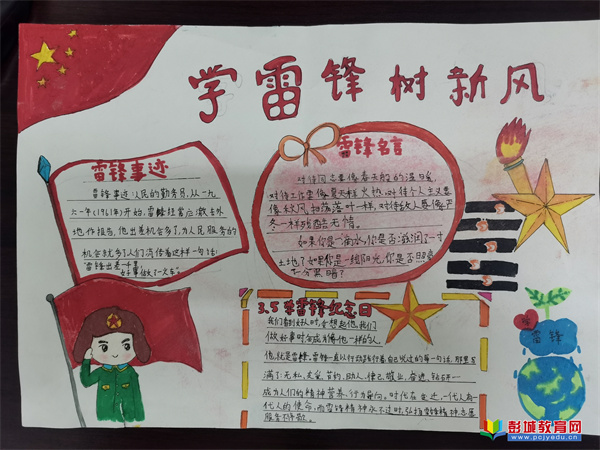 学雷锋树新风
雷锋事迹
雷锋事迹:人民的勤务员,从一九
六一年(1961年)开始,雷锋经常应邀去外
地作报告,他出差机会多了,为人民服务的
机会就多了人们流传着这样一句话:
雷锋出差
好事做了一火车。
雷锋名言
对待同志要像春天般的温暖,
对待工作要像夏天一样火热,对待个人主义要
像秋风扫落叶一样,对待敌人要像严
冬一样残酷无情。
如果你是一滴水,你是否滋润了一寸
土地?如果你是一缕阳光,你是否照亮
一分黑暗?
3.5学雷锋纪念日
我们看到好人时,会想起他,我们
做好事时
他,就是雷锋。雷锋一直以行动践行着自己说过的每一句话,那里
满了:无私、友爱、节约、助人、律己、敬业、奋进、钻研一
成为人们的精神营养、行为导向。时代在变迁,一代人有一
代人的使命,而雷锋精神永不过时,弘扬雷锋精神志愿
服务不停歇。
学
雷锋
彭城教育网
www.pcjyedu.cn